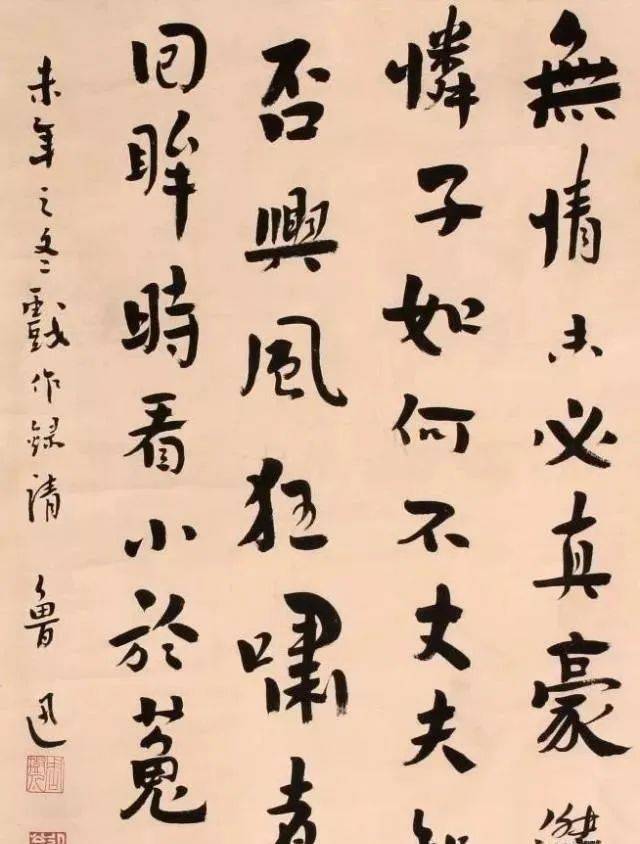 無情未必真豪傑
憐子如何不丈夫知
否興風狂嘯者
回眸時看小於菟
未年之冬戲作録請 魯迅